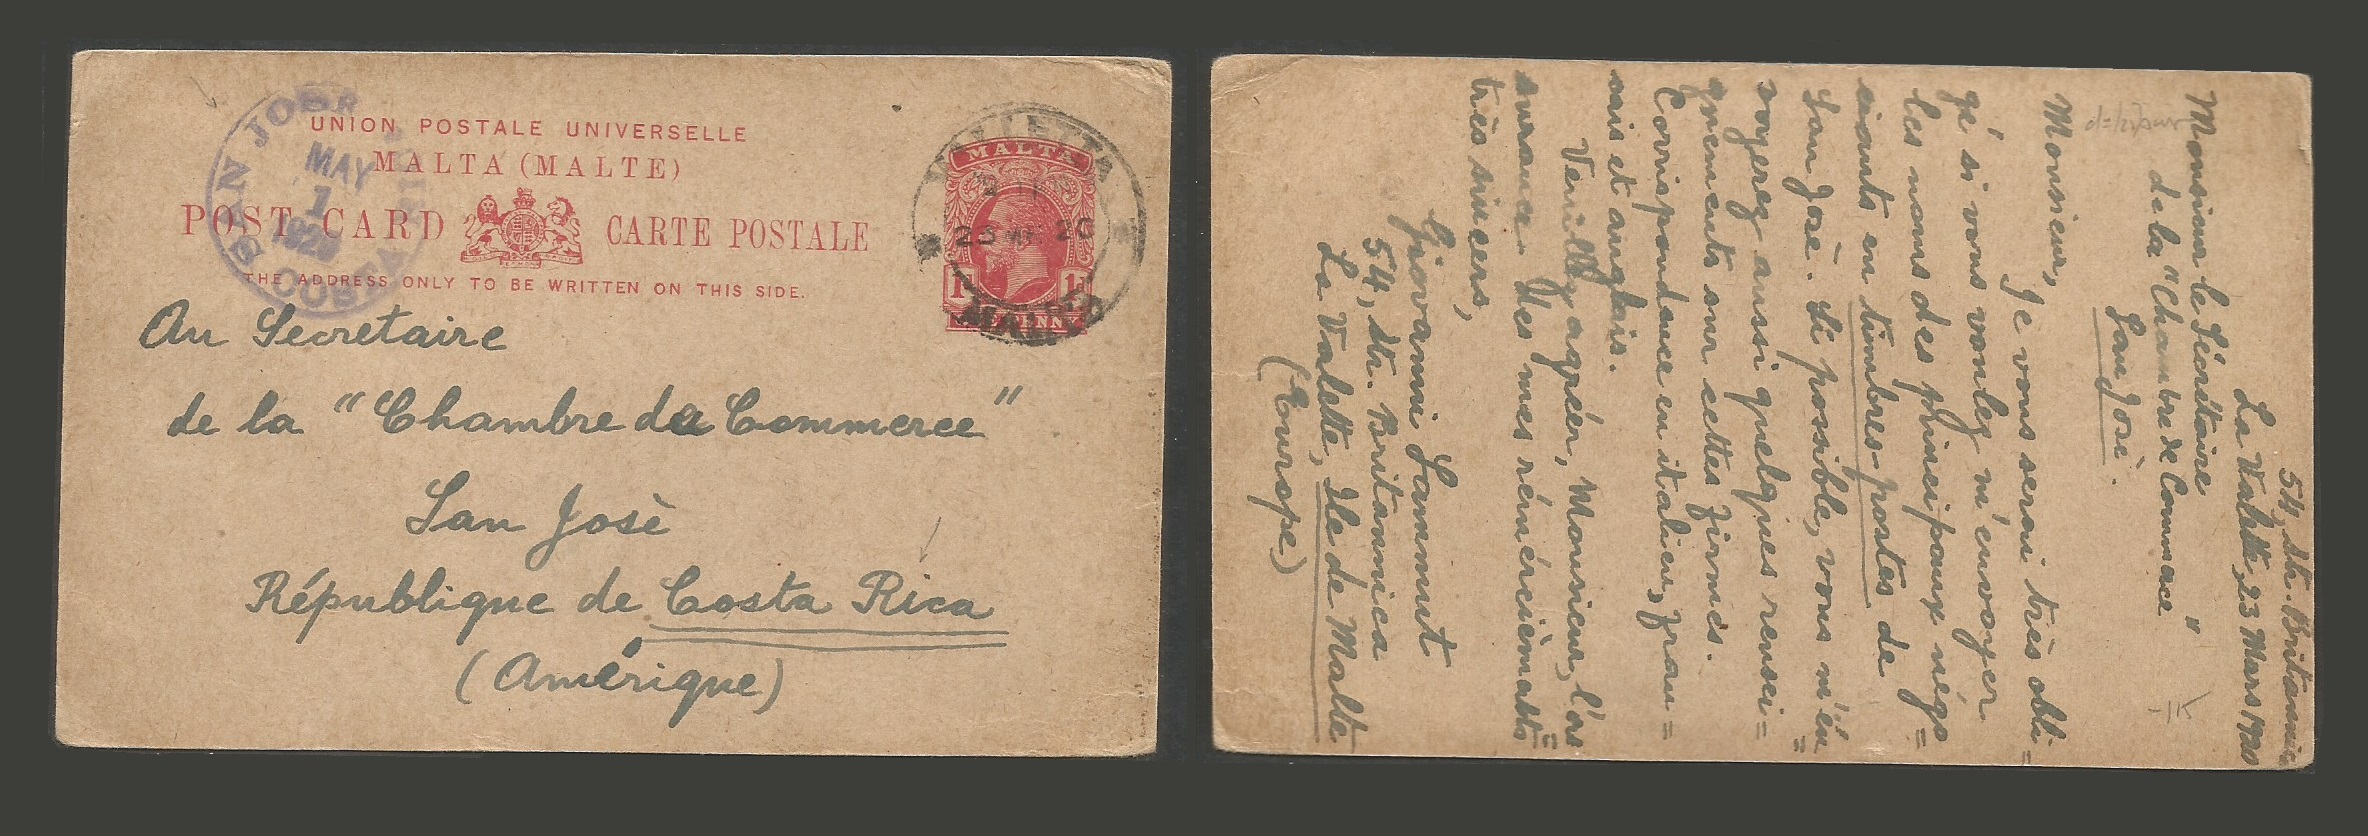 UNION POSTALE UNIVERSELLE
MALTA (MALTE)
POST CARD CARTE POSTALE
THE ADDRESS ONLY TO BE WRITTEN ON THIS SIDE.
SAN JOSE
MAY
1
COSTA
VALLETTA
MALTA
MALTA
Au Secretaire
de la "Chambre de Commerce"
San Josè
République de Costa Rica
(Amérique)
54, Str. Britannica
La Valette, 23 Mars 1920
Monsieur le Sécrétaire
de la "Chambre de Commerce"
San Josè.
Monsieur,
Je vous serai très obli=
gé si vous voulez m'envoyer
les noms des principaux négo=
ciants en timbres-postes de
San Josè. Si possible, vous m'en
voyerez aussi quelques rensei=
gnements sur cettes firmes.
Corrispondance en italien, fran=
cais et anglais.
Veuillez agréer, Monsieur, l'as
surance des mes rémércièments
très sincers,
Giovanni Sammut
54, Str. Britannica
La Valette, Ile de Malte
(Europe)